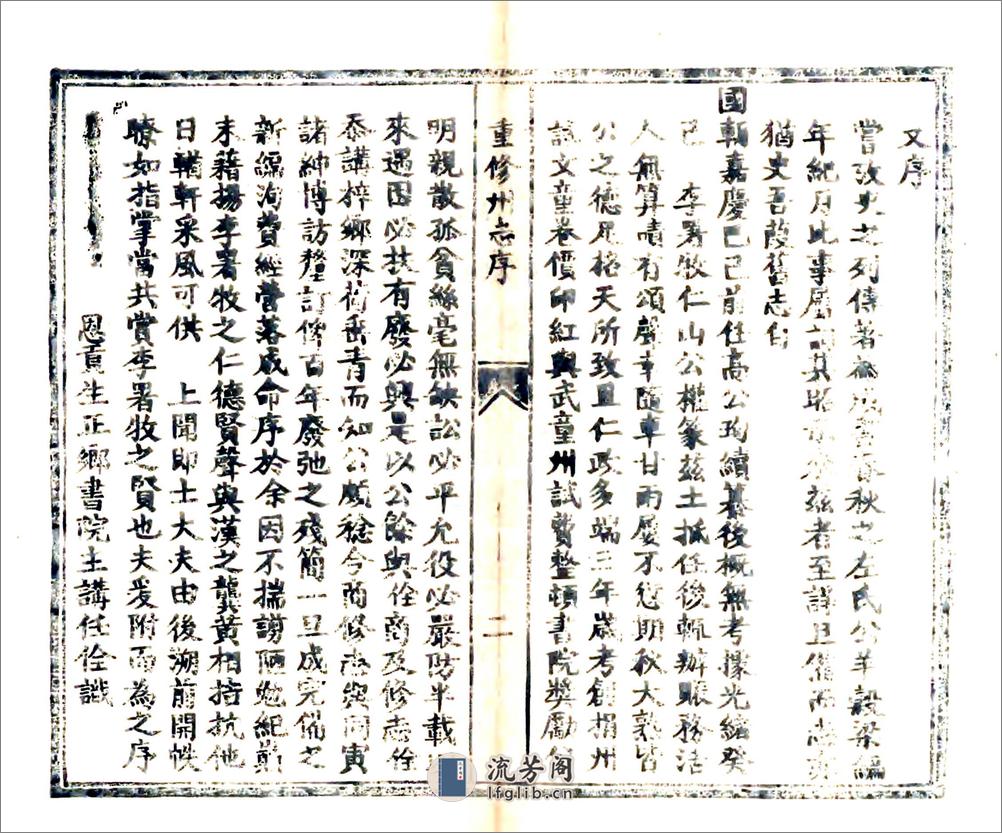 又序
嘗攷史之列傳著春秋之左氏公羊穀梁編
年紀月比事屬兹者至詳且備而志
猶史吾葭舊志自
國朝嘉慶己巳前任高公珣續纂後概無考據光緒癸
巳 李署牧仁山公權篆兹土抵任後輒辦賑務活
人無算嘖有頌聲幸隨車甘雨屢不愆期秋大熟皆
公之德足格天所致且仁政多端三年歲考創捐州
試文童卷價印紅與武童州試費整頓書院獎勵
重修州志序
二
明親散孤貧絲毫無缺訟必平允役必嚴防半載
來遇困必扶有廢必興是以公餘與佺商及修志佺
忝講梓鄉深荷垂青而知公願稔今商修志與同寅
諸紳博訪釐訂俾百年廢弛之殘簡一旦成完備之
新編洵費經營落成命序於余因不揣謭陋勉紀顛
末藉揚李署牧之仁德賢聲與漢之龔黃相掎抗他
日輶軒采風可供 上聞即士大夫由後溯前開帙
瞭如指掌當共賞李署牧之賢也夫爰附而為之序
恩貢生正鄉書院主講任佺識
流芳阁
lfglib.cn